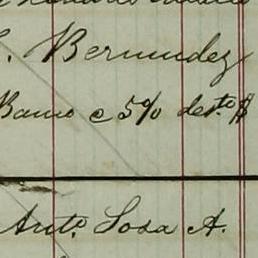 . Bermudez
Banco c 5% desto $
Anto Sosa A.